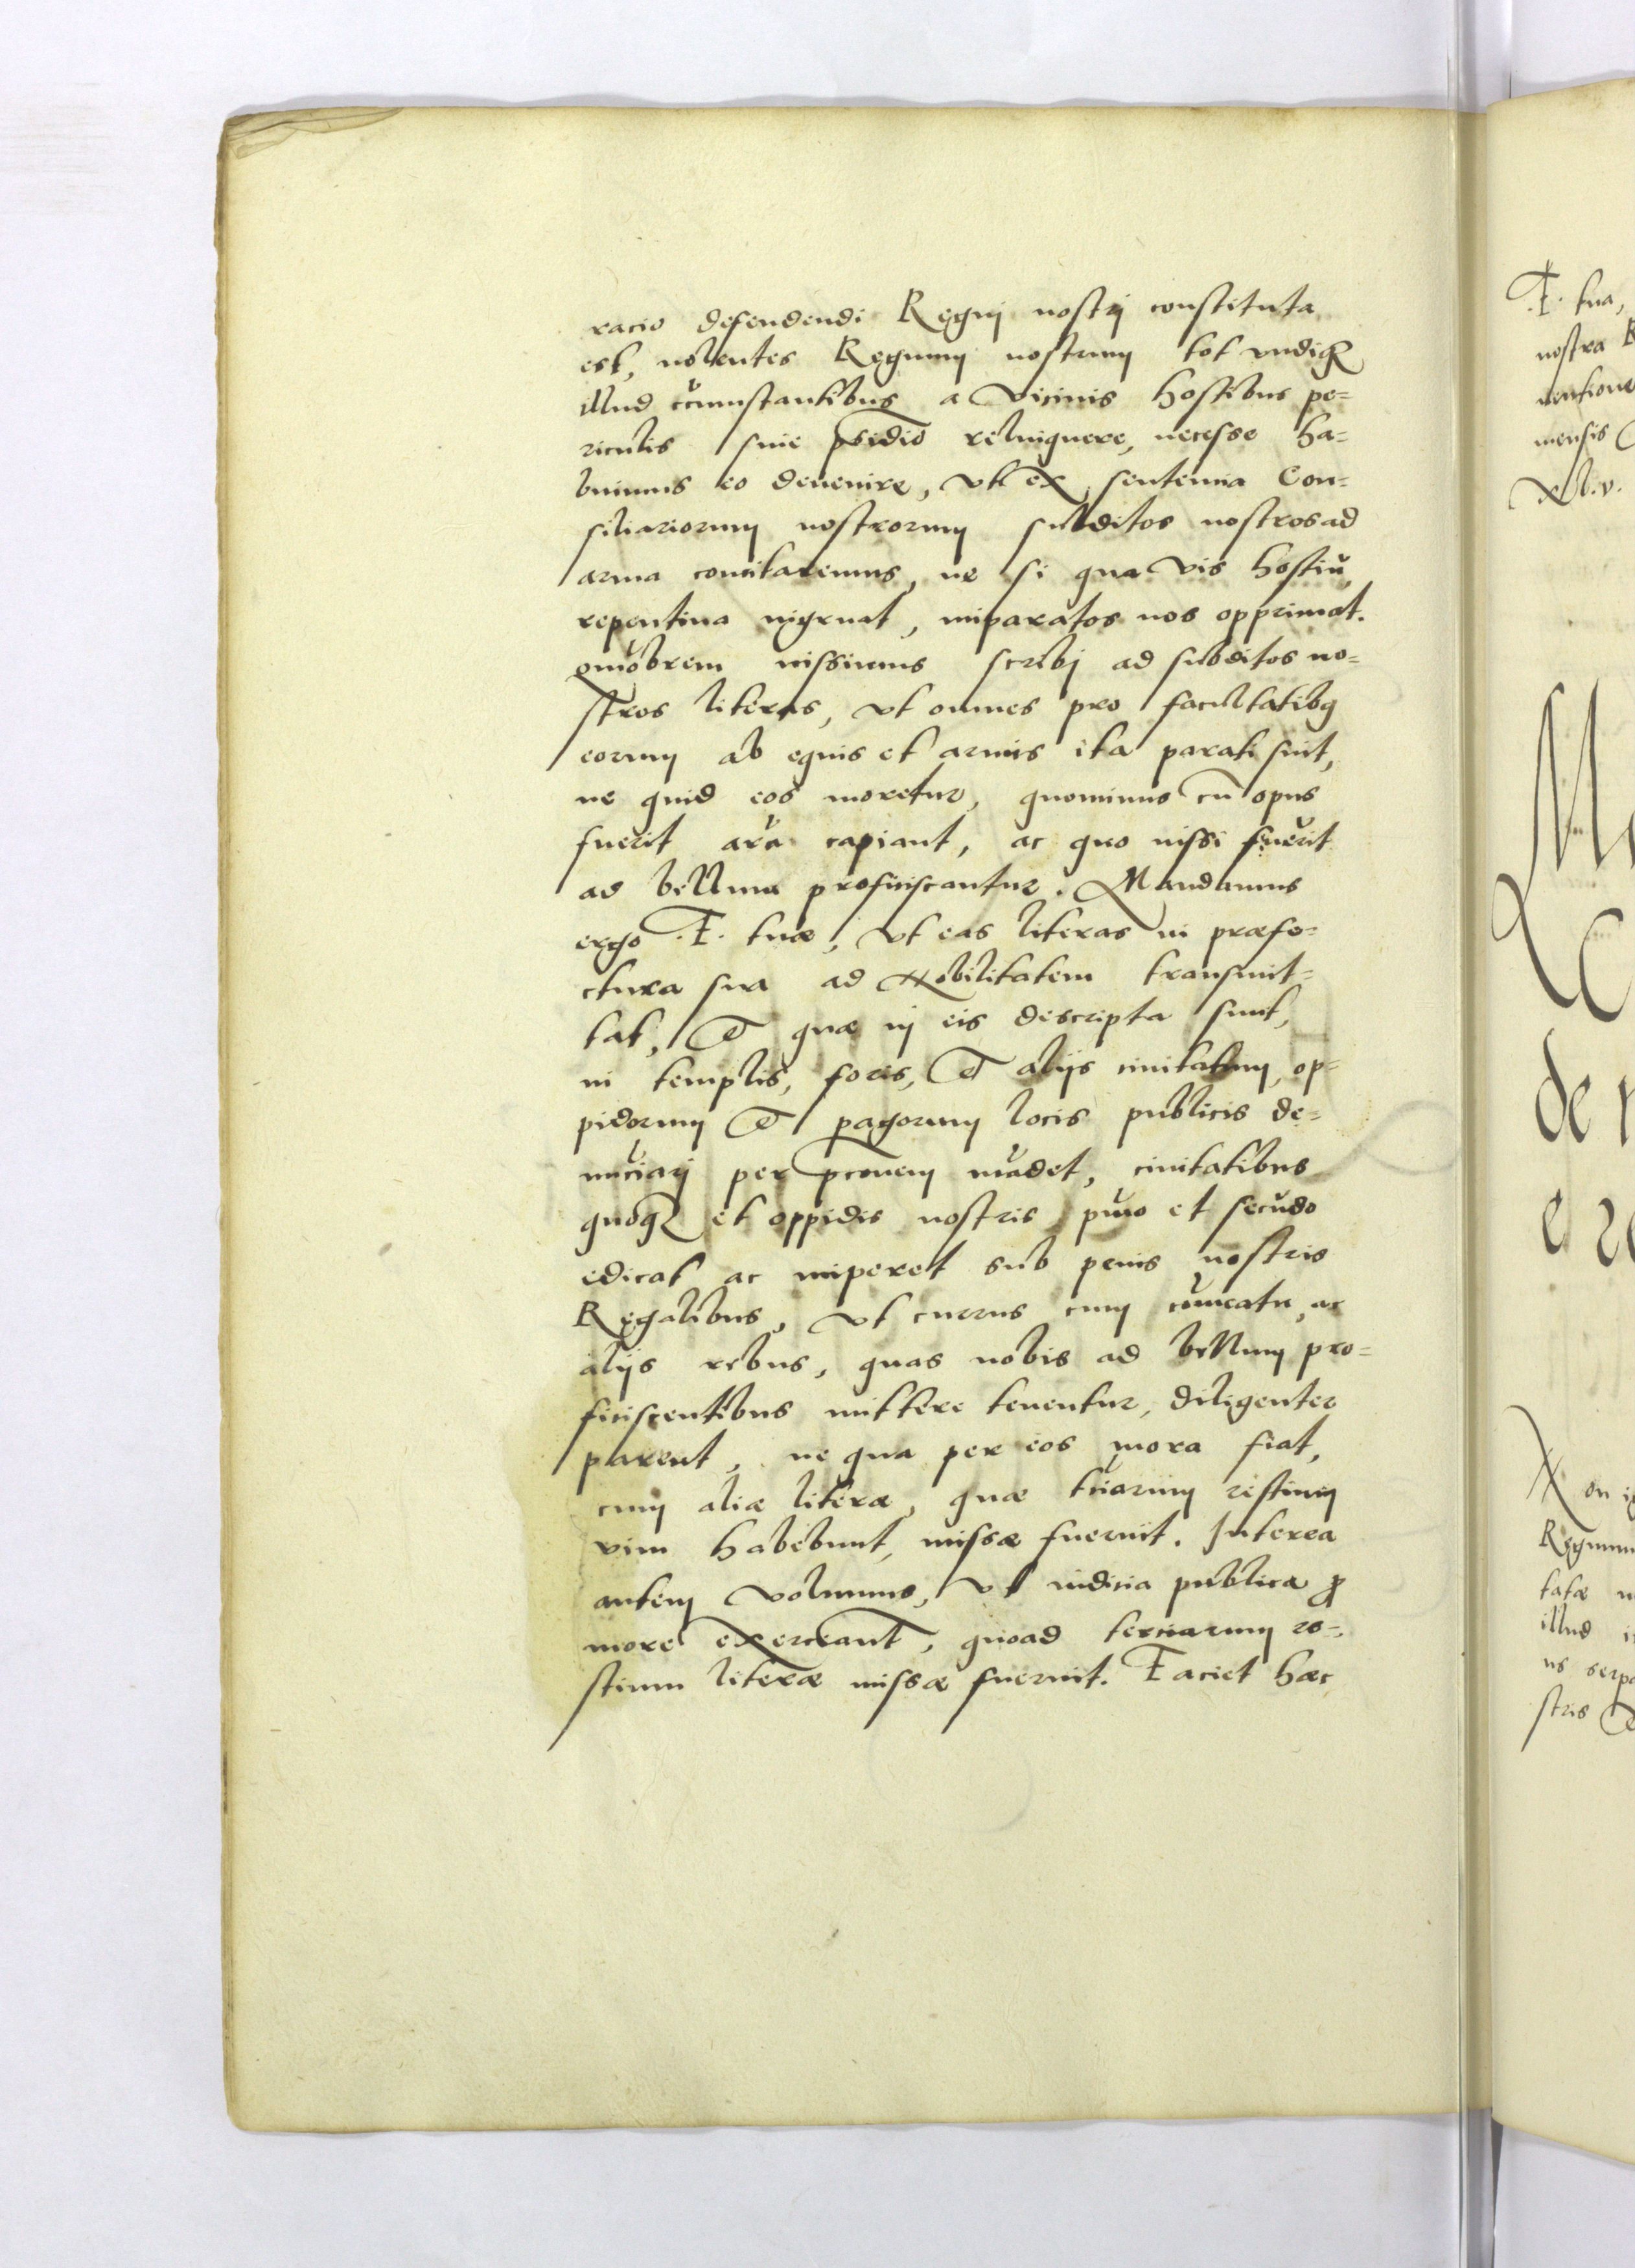 racio defendendi Regnj nostrj constituta
est, nolentes Regnum nostrum tot vndiq3
illud circumstantibus a vicinis hostibus pe=
riculis sine psidio relinquere, necesse ha=
buimus eo deuenire, vt ex sentencia Con=
siliariorum nostrorum subditos nostros ad
arma concitaremus, ne si qua vis hostiũ
repentina ingruat, imparatos nos opprimat.
qmobrem iussimus scribj ad subditos no=
stros literas, vt omnes pro facultatibq
eorum ab equis et armis ita parati sint,
ne quid eos moretur, quominus cũ opus
fuerit arã capiant, ac quo iussi fuerit
ad bellum proficiscantur. Mandamus
ergo .F. tuæ, vt eas literas in præfe=
ctura sua ad Nobilitatem transmit=
tat, et quæ in eis descripta sunt,
in templis, foris, et alijs ciuitatum, op=
pidorum et pagorum locis publicis de=
nũciarj per pconem mãdet, ciuitatibus
quoq3 et oppidis nostris pmo et secũdo
edicat ac imperet sub penis nostris
Regalibus, vt currus cum cõmeatu, ac
alijs rebus, quas nobis ad bellum pro=
ficiscentibus mittere tenentur, diligenter
parent, ne qua per eos mora fiat,
cum aliæ literæ, quæ tciarum restium
vim habebunt, missæ fuerint. Interea
autem volumus, vt iudicia publica ꝓ
more exerceant, quoad terciarum re=
stium literæ missæ fuerint. Faciet hæc
.F. tua,
nostra
mensis
illud
stris